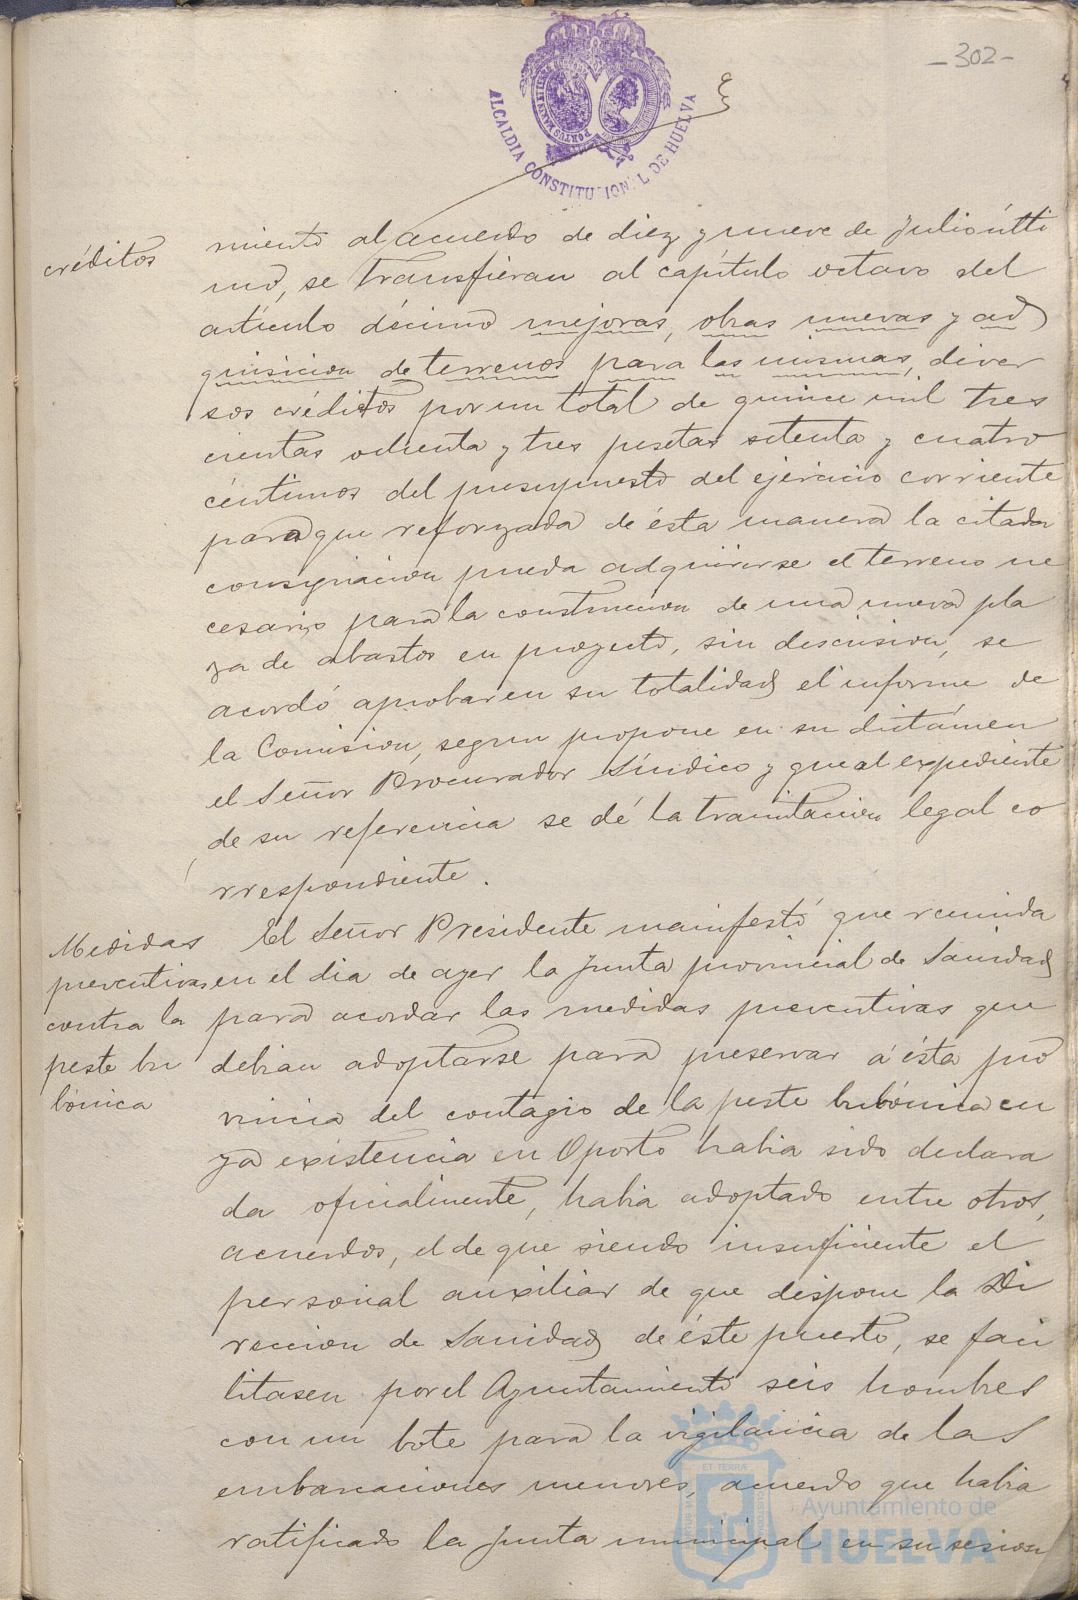 -302-
ALCALDIA CONSTITUCIONAL DE HUELVA
créditos
miento al acuerdo de diez y nueve de Julio últi
mo, se transfieran al capítulo octavo del
artículo décimo mejoras, obras nuevas y ad
quisicion de terrenos para las mismas, diver
sos créditos por un total de quince mil tres
cientas ochenta y tres pesetas setenta y cuatro
céntimos del presupuesto del ejercicio corriente
para que reforzada de ésta manera la citada
consignacion pueda adquirirse el terreno ne
cesario para la construccion de una nueva pla
za de abastos en proyecto, sin descision, se
acordó aprobar en su totalidad el informe de
la Comision, segun propone en su dictámen
el Señor Procurador Síndico y que al expediente
de su referencia se dé la tramitacion legal co
rrespondiente.
Medidas
preventivas
contra la
peste bu
bónica
El Señor Presidente manifestó que reunida
en el dia de ayer la Junta provincial de Sanidad
para acordar las medidas preventivas que
debian adoptarse para preservar á ésta pro
vincia del contagio de la peste bubónica cu
ya existencia en Oporto habia sido declara
da oficialmente, habia adoptado entre otros,
acuerdos, el de que siendo insuficiente el
personal auxiliar de que dispone la Di
reccion de Sanidad de éste puerto, se faci
litasen por el Ayuntamiento seis hombres
con un bote para la vigilancia de las
embarcaciones menores, acuerdo que habia
ratificado la Junta municipal en su sesion
Ayuntamiento de
HUELVA